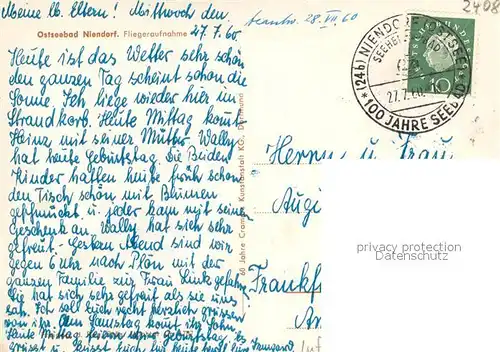 Meine lb. Eltern! Mittwoch den
27.7.60
beantw. 28. VII 60
2408
Ostseebad Niendorf. Fliegeraufnahme
Heute ist das Wetter sehr schön
den ganzen Tag scheint schon die
Sonne. Ich liege wieder hier im
Strandkorb. Heute Mittag kommt
Heinz mit seiner Mutter. Wally
hat heute Geburtstag. Die Beiden
Kinder halfen heute früh schon
den Tisch schön mit Blumen
u. jeder kam mit seinen
Geschenk an. Wally hat sich sehr
gefreut. Gestern Abend sind wir
gegen 6 Uhr nach Plön mit der
ganzen Familie zur Frau Link gefahren.
Sie hat sich sehr gefreut als sie uns
sah. Ich soll Euch recht herzlich grüssen
von ihr. Am Samstag kommt ihr Sohn.
Heute Mittag
grüsst u. küsst Euch Irmgard
60 Jahre Kunstanstalt K.G.
(24b) NIENDORF (OSTSEE)
27.7.60
* 100 JAHRE SEEBAD *
DEUTSCHE BUNDESPOST
10
Herrn u. Frau
Augi
Frankf
privacy protection
Sammlerwelt